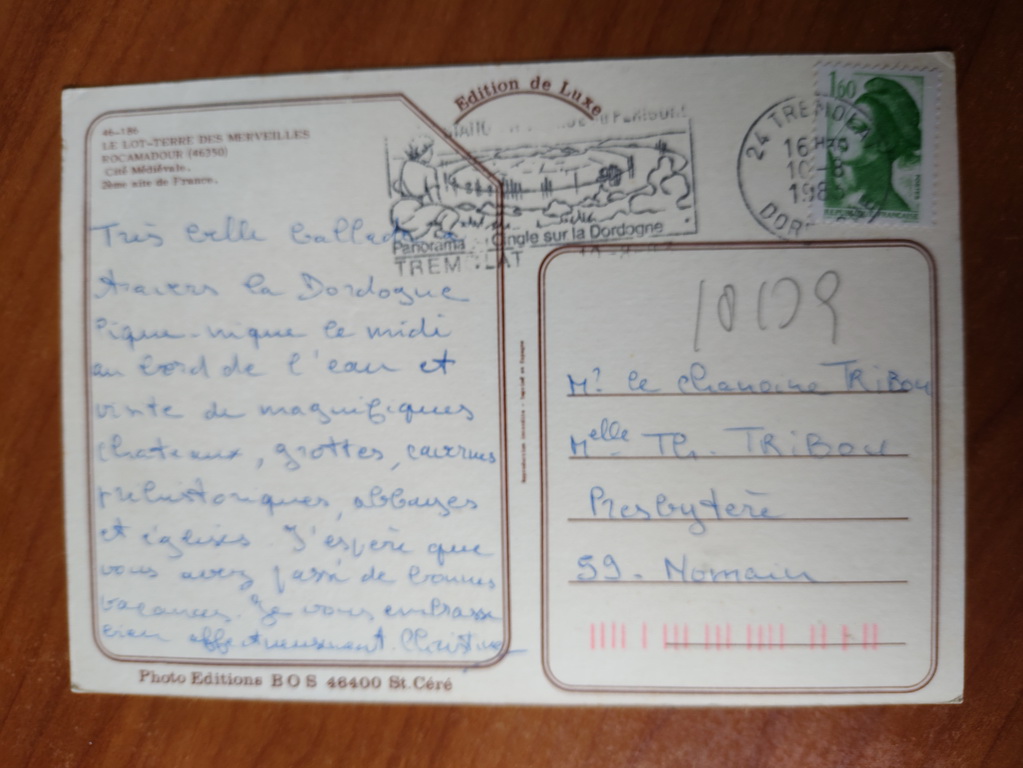 Edition de Luxe
46-186
LE LOT-TERRE DES MERVEILLES
ROCAMADOUR (46350)
Cité Médiévale.
2ème site de France.
Panorama Cingle sur la Dordogne
TREM LAT
24 TREMOLAT
16H
10-8
198
DOR
1,60
REPUBLIQUE FRANÇAISE
Très belle ballade à
travers la Dordogne
Pique-nique le midi
au bord de l'eau et
visite de magnifiques
chateaux, grottes, cavernes
préhistoriques, abbayes
et églises. J'espère que
vous avez passé de bonnes
vacances. Je vous embrasse
bien affectueusement. Christine
Photo Editions BOS 46400 St. Céré
Mr le chanoine TRIBOU
Melle Th. TRIBOU
Presbytère
59. Nomain